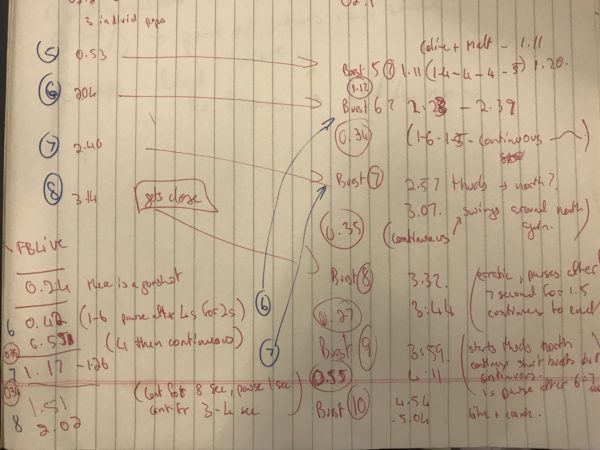 3 individ pops
(5) 0.53
(6) 2.04
(7) 2.46
(8) 3.14
gets close
FBLive
0.24 there is a gunshot
6 0.42 (1-6 pause after 4s for 2s)
(4 then continuous)
7 1.17 - 1.26
1.51
8 2.02
(cont for 8 sec, pause 1 sec
cont for 3-4 sec)
(6)
(7)
1.11
Burst 5? 1.11 (1-4-4-4-5) 1.20.
1.12
Burst 6? - 2.39
0.34
continuous
Burst (7) 2.57 thuds → north?
0.35
3.07. swings around north again.
(continuous
Burst (8) 3.32. erratic, pauses after
7 second for 1.5
continues to end
0.27 3:44
Burst (9) 3:59. (starts thuds north
continous short bursts but
continuous.
is pause after 6-7 sec
0.55 4.11
Burst (10) 4.54
- 5.04